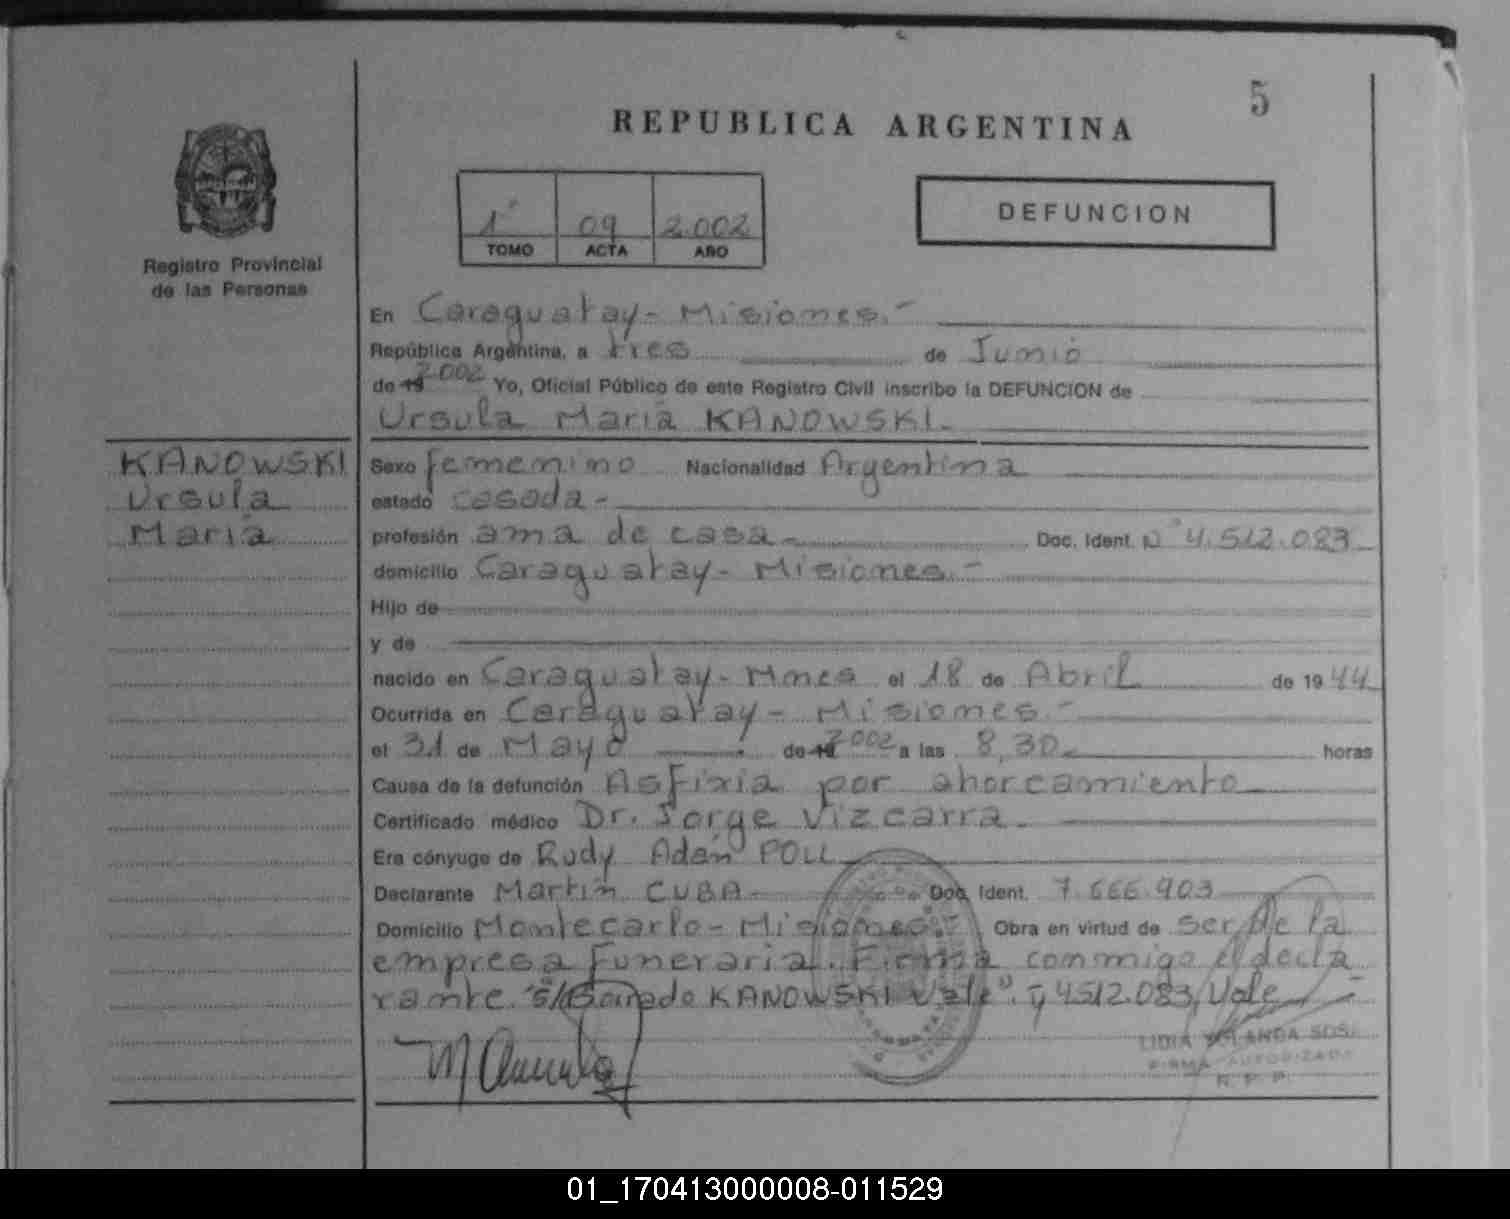 5
REPUBLICA ARGENTINA
1° 09 2.002
TOMO ACTA AÑO
DEFUNCION
Registro Provincial
de las Personas
En Caraguatay - Misiones.-
República Argentina, a tres de Junio
de 19 2.002 Yo, Oficial Público de este Registro Civil inscribo la DEFUNCION de
Ursula Maria KANOWSKI.
KANOWSKI
Ursula
Maria
Sexo femenino Nacionalidad Argentina
estado casada-
profesión ama de casa- Doc. Ident. N° 4.512.083
domicilio Caraguatay - Misiones.-
Hijo de
y de
nacido en Caraguatay - Mnes el 18 de Abril de 1944
Ocurrida en Caraguatay - Misiones.-
el 31 de Mayo de 19 2002 a las 8,30 horas
Causa de la defunción Asfixia por ahorcamiento
Certificado médico Dr. Jorge Vizcarra.
Era cónyuge de Rudy Adan POLL
Declarante Martin CUBA Doc. Ident. 7.666.903
Domicilio Montecarlo - Misiones Obra en virtud de ser de la
empresa Funeraria. Firma conmigo el decla
rante "s/Borrado KANOWSKI Vale". y 4512.083, Vale
LIDIA YOLANDA SOSA
FIRMA AUTORIZADA
R. P. P.
01_170413000008-011529